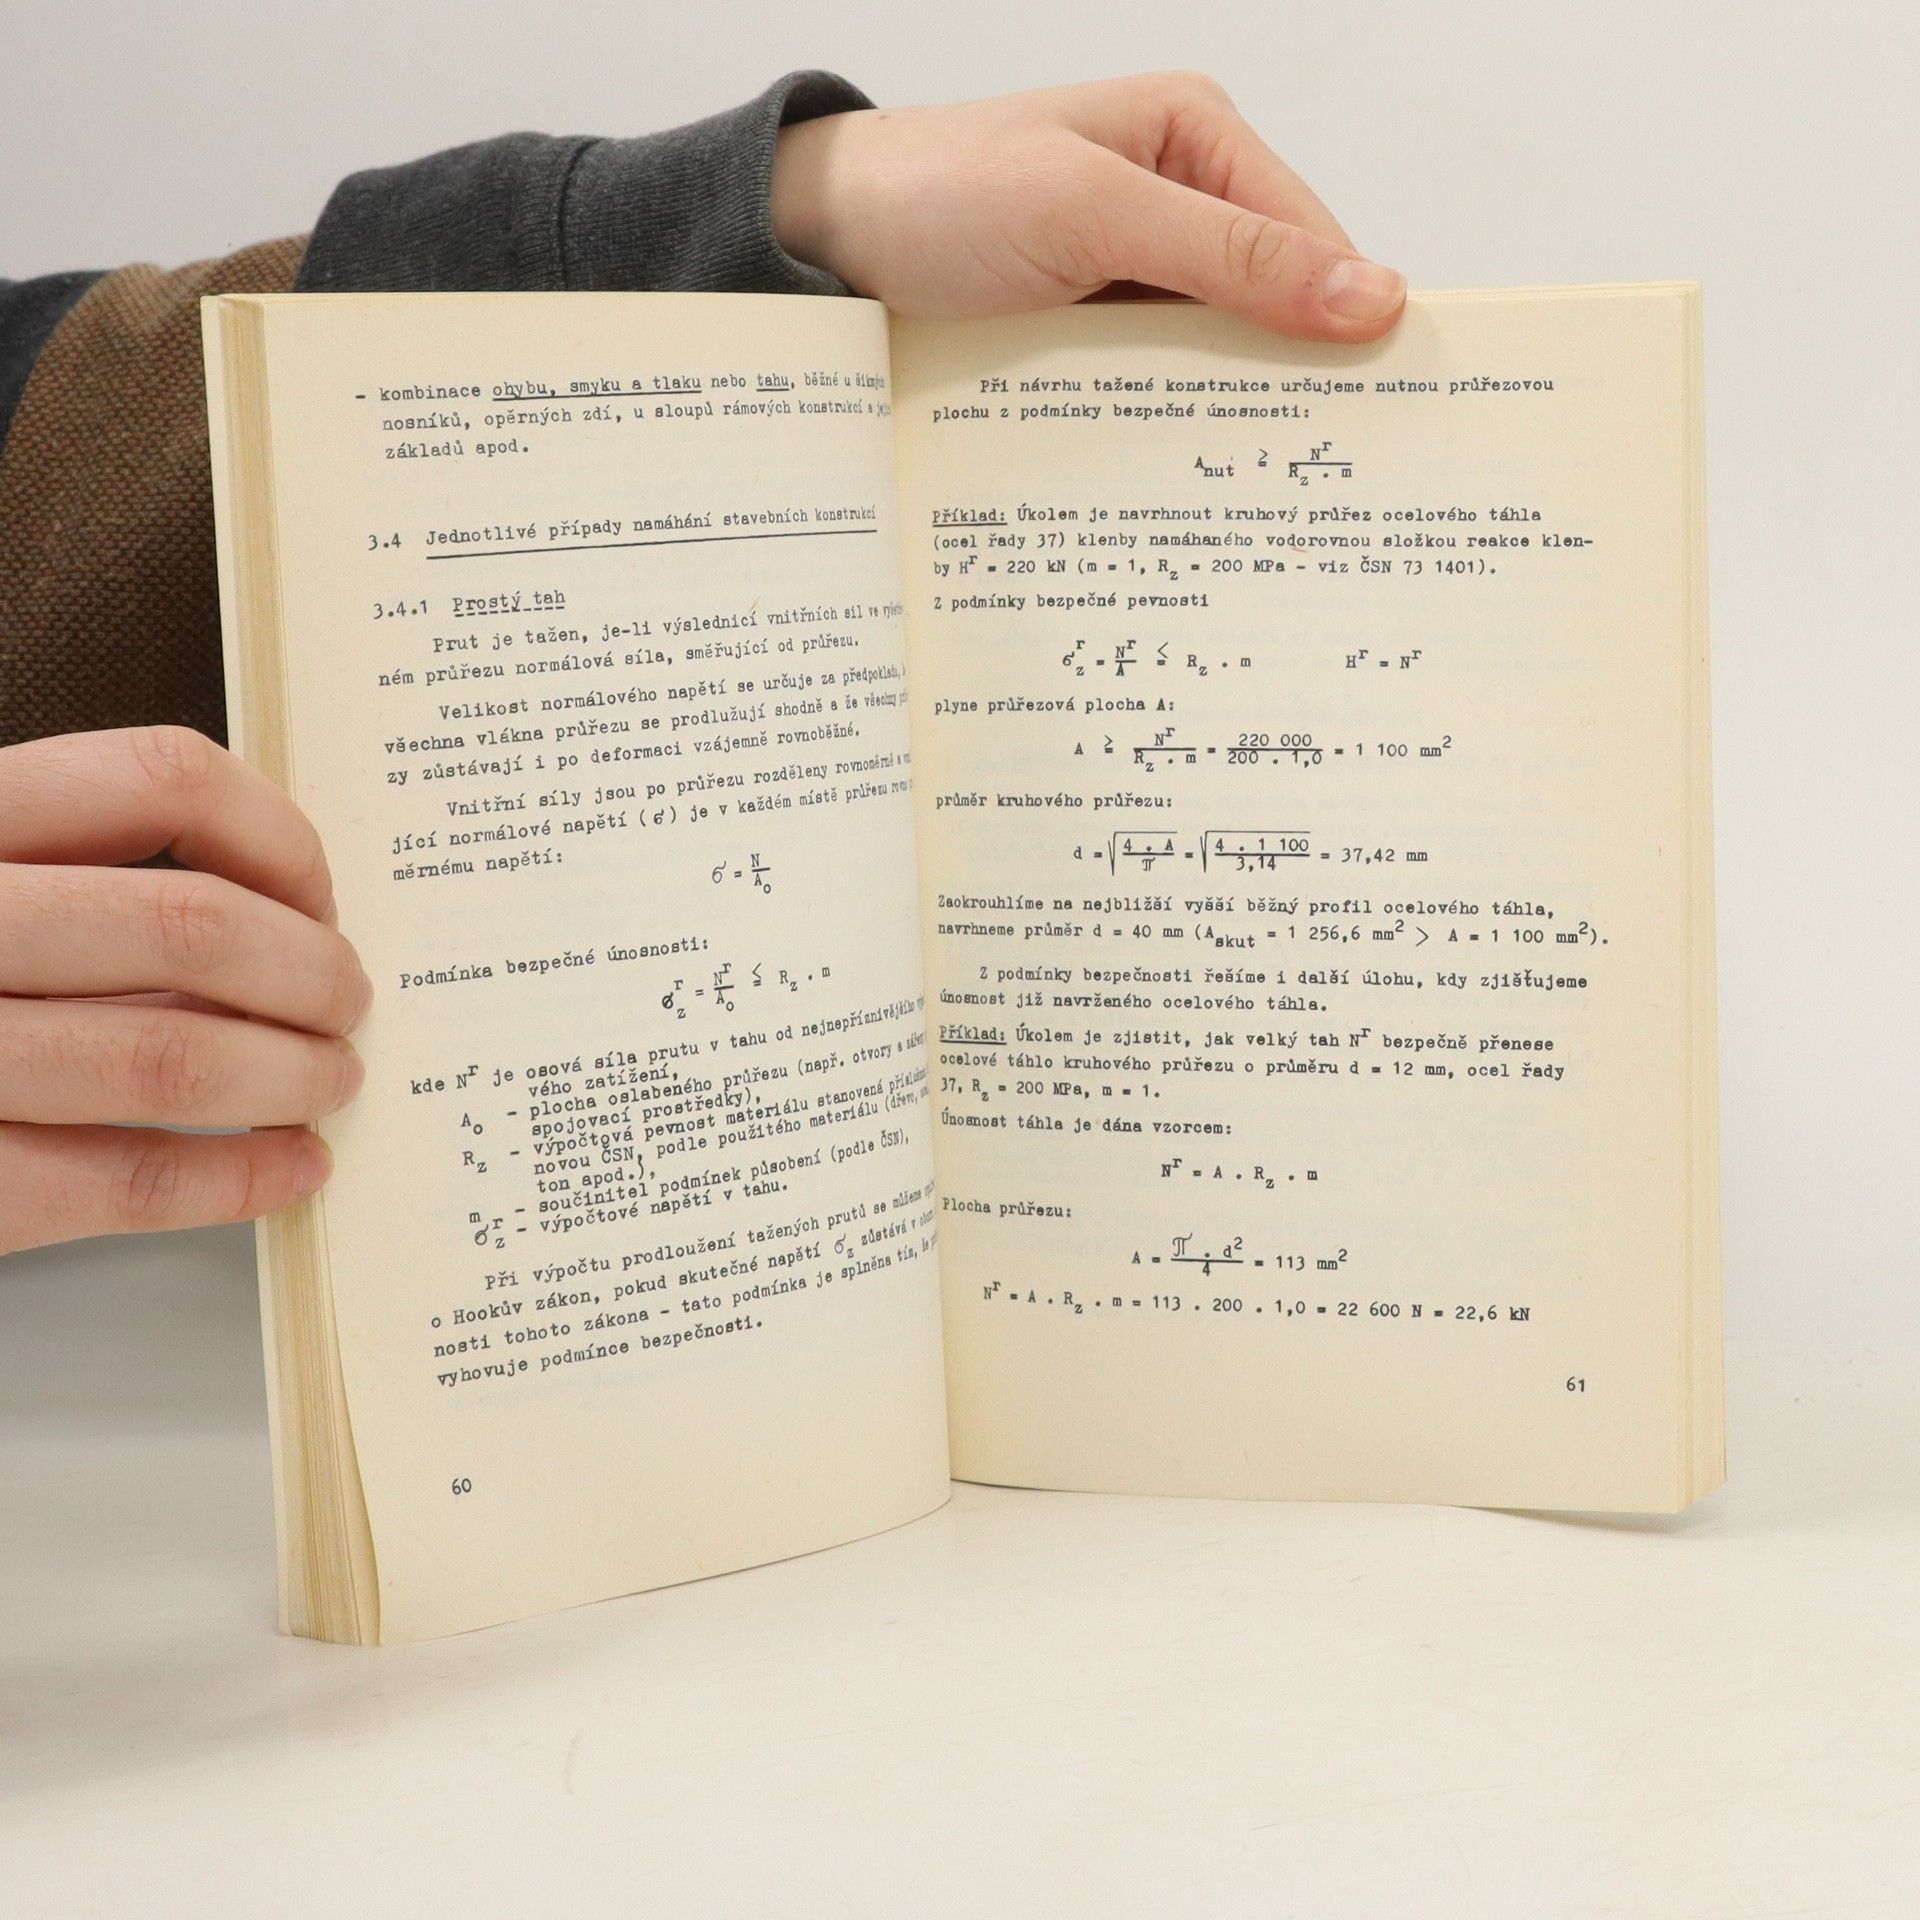 - kombinace ohybu, smyku a tlaku nebo tahu, běžné u šikmých
nosníků, opěrných zdí, u sloupů rámových konstrukcí a
základů apod.
3.4 Jednotlivé případy namáhání stavebních konstrukcí
3.4.1 Prostý tah
Prut je tažen, je-li výslednicí vnitřních sil ve
ném průřezu normálová síla, směřující od průřezu.
Velikost normálového napětí se určuje za předpokladu,
všechna vlákna průřezu se prodlužují shodně a že všechny
zy zůstávají i po deformaci vzájemně rovnoběžné.
Vnitřní síly jsou po průřezu rozděleny rovnoměrně a
jící normálové napětí (σ) je v každém místě průřezu
měrnému napětí:
σ = N / A₀
Podmínka bezpečné únosnosti:
σ_z^r = N^r / A₀ ≦ R_z . m
kde N^r je osová síla prutu v tahu od nejnepříznivějšího
vého zatížení,
A₀ - plocha oslabeného průřezu (např. otvory a
spojovací prostředky),
R_z - výpočtová pevnost materiálu stanovená
novou ČSN, podle použitého materiálu (dřevo,
ton apod.),
m - součinitel podmínek působení (podle ČSN),
σ_z^r - výpočtové napětí v tahu.
Při výpočtu prodloužení tažených prutů se můžeme
o Hookův zákon, pokud skutečné napětí σ_z zůstává v
nosti tohoto zákona - tato podmínka je splněna tím, že
vyhovuje podmínce bezpečnosti.
60
Při návrhu tažené konstrukce určujeme nutnou průřezovou
plochu z podmínky bezpečné únosnosti:
A_nut ≧ N^r / (R_z . m)
Příklad: Úkolem je navrhnout kruhový průřez ocelového táhla
(ocel řady 37) klenby namáhaného vodorovnou složkou reakce klen-
by H^r = 220 kN (m = 1, R_z = 200 MPa - viz ČSN 73 1401).
Z podmínky bezpečné pevnosti
σ_z^r = N^r / A ≦ R_z . m H^r = N^r
plyne průřezová plocha A:
A ≧ N^r / (R_z . m) = 220 000 / (200 . 1,0) = 1 100 mm²
průměr kruhového průřezu:
d = √(4 . A / π) = √(4 . 1 100 / 3,14) = 37,42 mm
Zaokrouhlíme na nejbližší vyšší běžný profil ocelového táhla,
navrhneme průměr d = 40 mm (A_skut = 1 256,6 mm² > A = 1 100 mm²).
Z podmínky bezpečnosti řešíme i další úlohu, kdy zjišťujeme
únosnost již navrženého ocelového táhla.
Příklad: Úkolem je zjistit, jak velký tah N^r bezpečně přenese
ocelové táhlo kruhového průřezu o průměru d = 12 mm, ocel řady
37, R_z = 200 MPa, m = 1.
Únosnost táhla je dána vzorcem:
N^r = A . R_z . m
Plocha průřezu:
A = π . d² / 4 = 113 mm²
N^r = A . R_z . m = 113 . 200 . 1,0 = 22 600 N = 22,6 kN
61